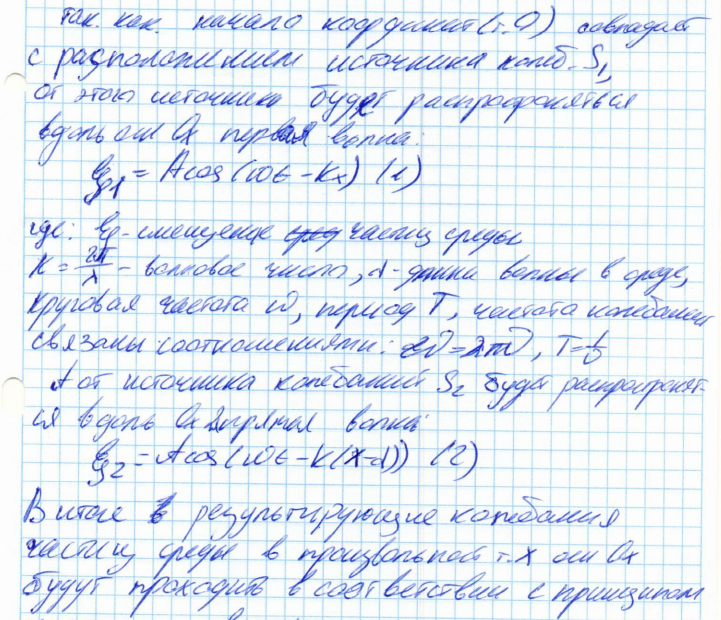 так. как. начало координат (т. О) совпадает
с расположением источника колеб. S₁,
от этого источника будет распространяться
вдоль оси Ox первая волна:
ξ₁ = A cos (ωt - kx) (1)
где: ξ - смещение частиц среды
k = 2π/λ - волновое число, λ - длина волны в среде,
круговая частота ω, период T, частота колебаний
связаны соотношениями: ω = 2πν, T = 1/ν
А от источника колебаний S₂ будет распространят-
ся вдоль Ox прямая волна:
ξ₂ = A cos (ωt - k(x-d)) (2)
В итоге результирующие колебания
частиц среды в произвольной т. x оси Ox
будут проходить в соответствии с принципом